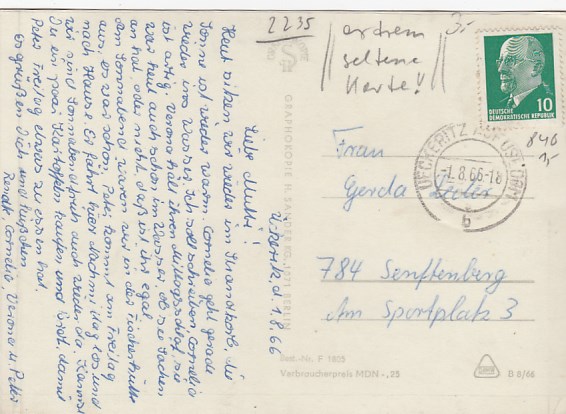 2235
extrem
seltene
Karte!!
3,-
10
DEUTSCHE
DEMOKRATISCHE REPUBLIK
UECKERITZ AUF USEDOM
-1.8.66-18
b
840
1,-
Frau
Gerda
784 Senftenberg
Am Sportplatz 3
Best.-Nr. F 1805
Verbraucherpreis MDN -,25
B 8/66
GRAPHOKOPIE H. SANDER KG, 1071 BERLIN
Ückeritz, d. 1.8.66
Liebe Mutti!
Heut sitzen wir wieder im Strandkorb, die
Sonne ist wieder warm. Cornelia geht gerade
wieder ins Wasser. Ich soll schreiben, Cornelia
ist artig. Verona hält ihren Mittagsschlaf, sie
war heut auch schon im Wasser, ob sie Sachen
an hat oder nicht, daß ist ihr egal.
Am Sonnabend waren wir in der
aus, es war schön. Peter kommt am Freitag
nach Hause. Er fährt hier Nachmittag los und
wir sind Sonnabend früh auch wieder da. Kannst
Du ein paar Kartoffeln kaufen und Brot, damit
Peter Freitag etwas zu essen hat.
Es grüßen Dich und Küßchen
Renate, Cornelia, Verona u. Peter